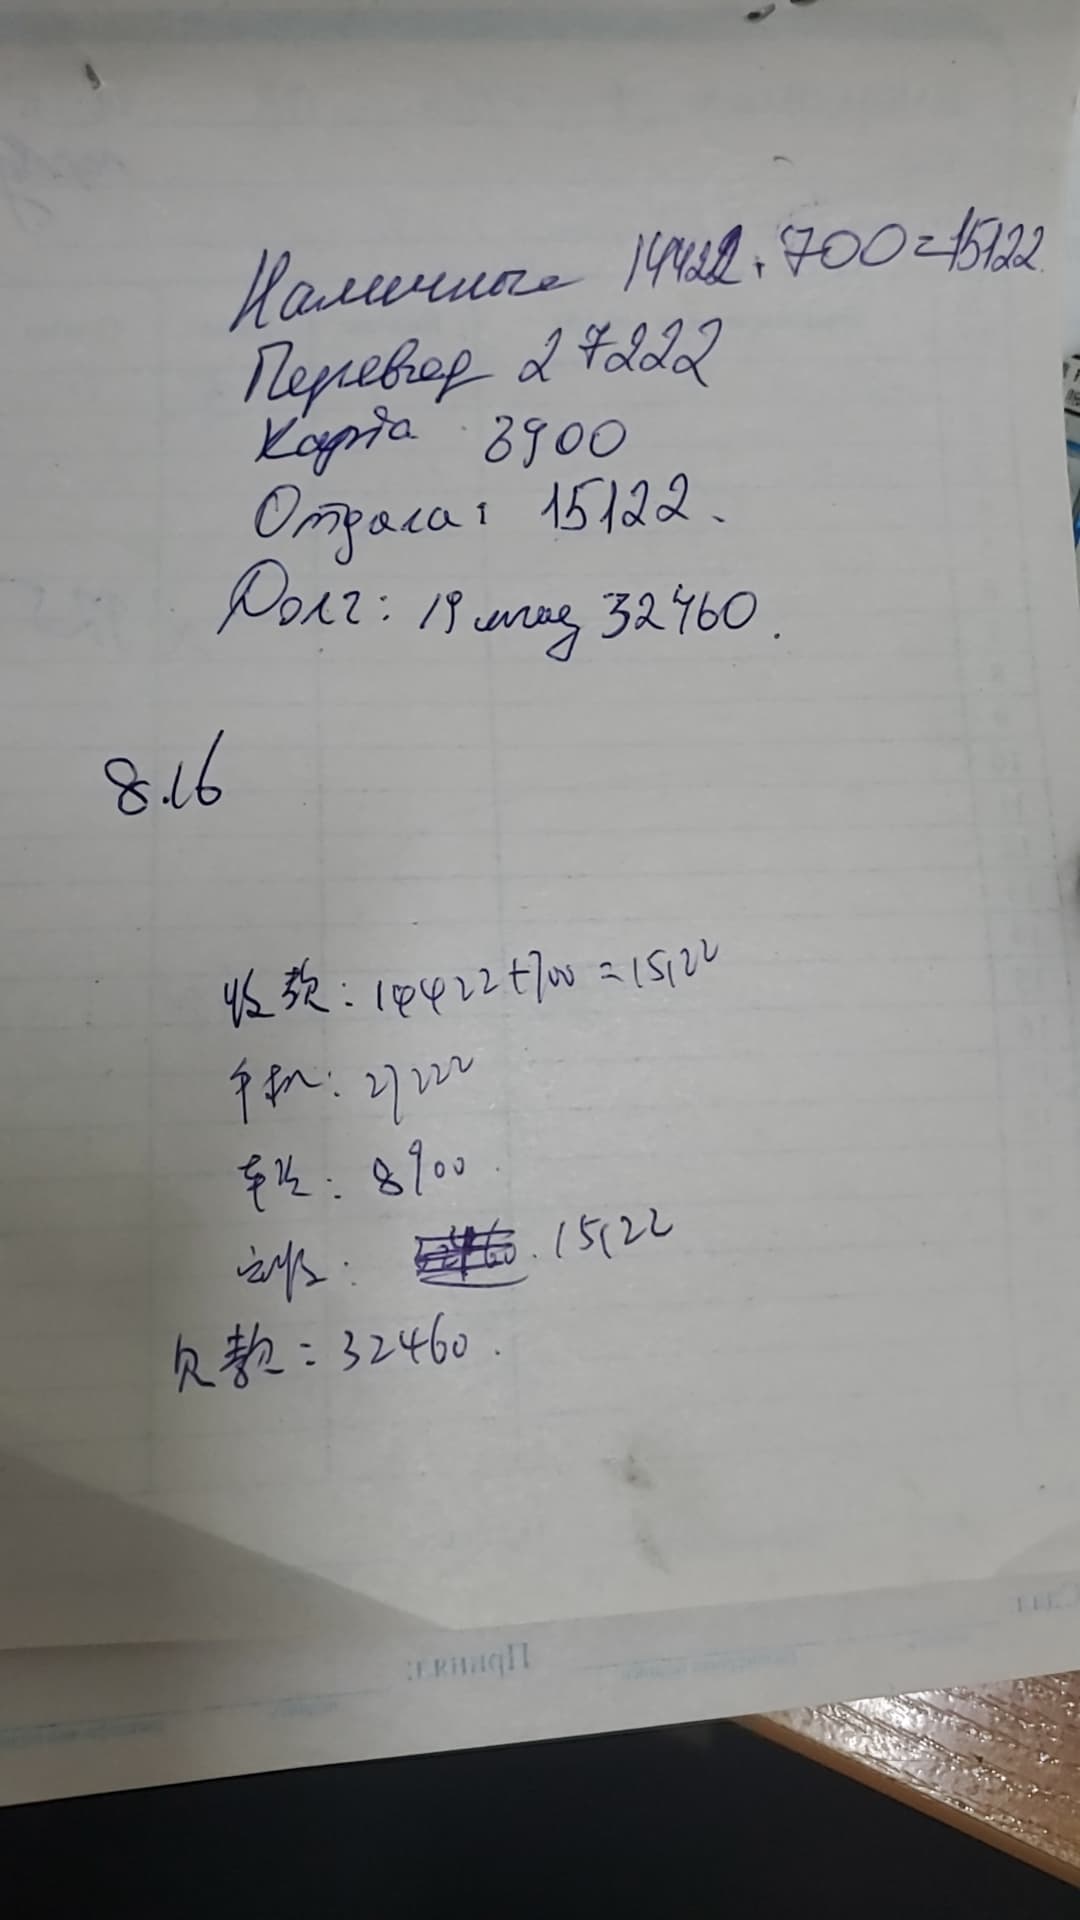 Наличные 14422+700=15122
Перевод 27222
Карта 3900
Отдала: 15122.
Долг: 19 маг 32460.
8.16
收款:14422+700=15122
手机:27222
车次:8900
实收: 15122
欠款=32460.
Принял: